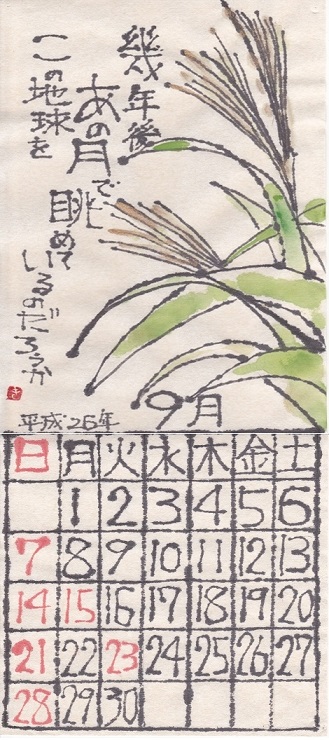 幾年後
あの月で、
この地球を
眺めて
いるのだろうか
9月
平成・26年
日 月 火 水 木 金 土
1 2 3 4 5 6
7 8 9 10 11 12 13
14 15 16 17 18 19 20
21 22 23 24 25 26 27
28 29 30